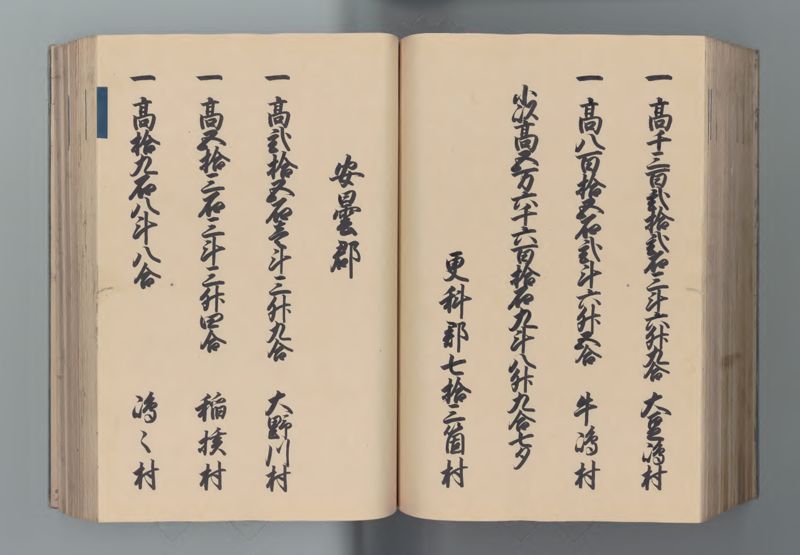 一 高千三百弐拾弐石三斗六升九合 大豆嶋村
一 高八百拾五石弐斗六升五合 牛嶋村
小以高五万六千六百拾石九斗八升九合七夕
更科郡七拾三箇村
安曇郡
一 高弐拾五石壱斗三升九合 大野川村
一 高五拾三石三斗三升四合 稲核村
一 高拾九石八斗八合 嶋〻村